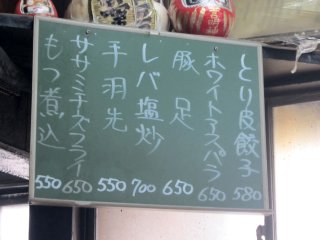 とり皮餃子 580
ホワイトアスパラ 650
豚足 650
レバ塩炒 700
手羽先 550
ササミチーズフライ 650
もつ煮込 550